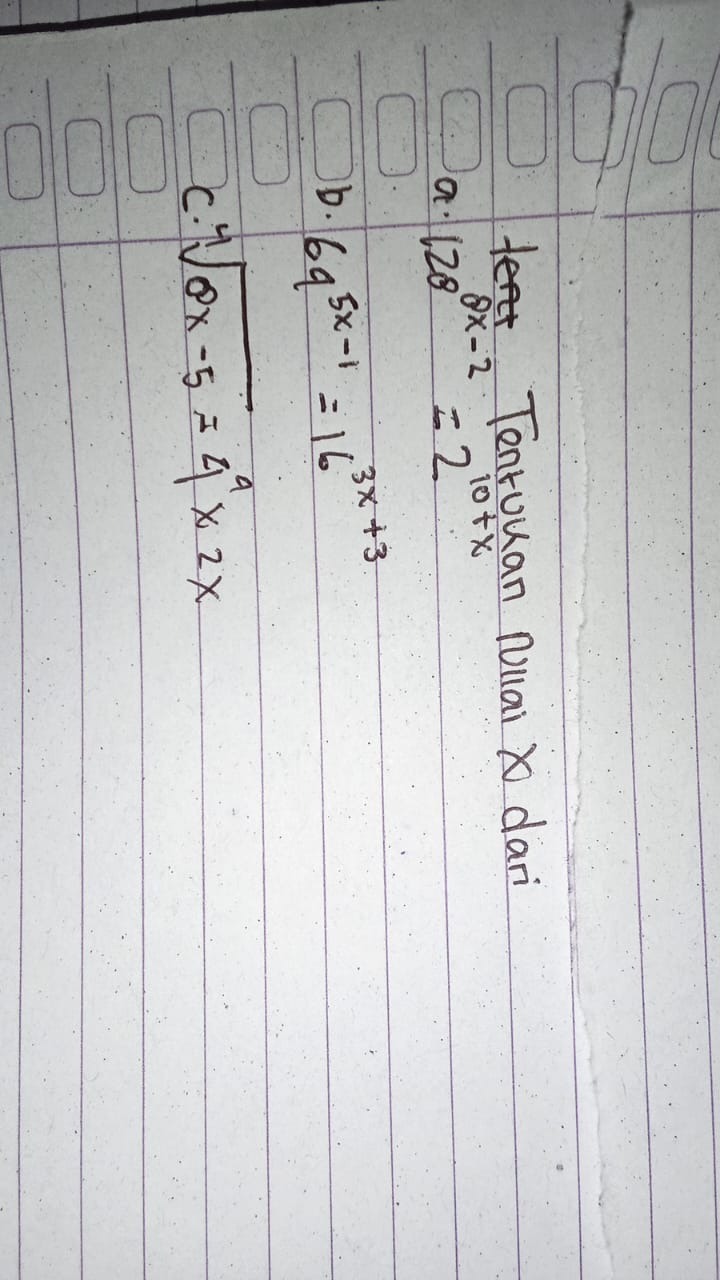 Tentukan nilai x dari
a. 128^8x-2 = 2^10+x
b. 64^5x-1 = 16^3x+3
c. ⁴√8x-5 = 4^9 x 2x